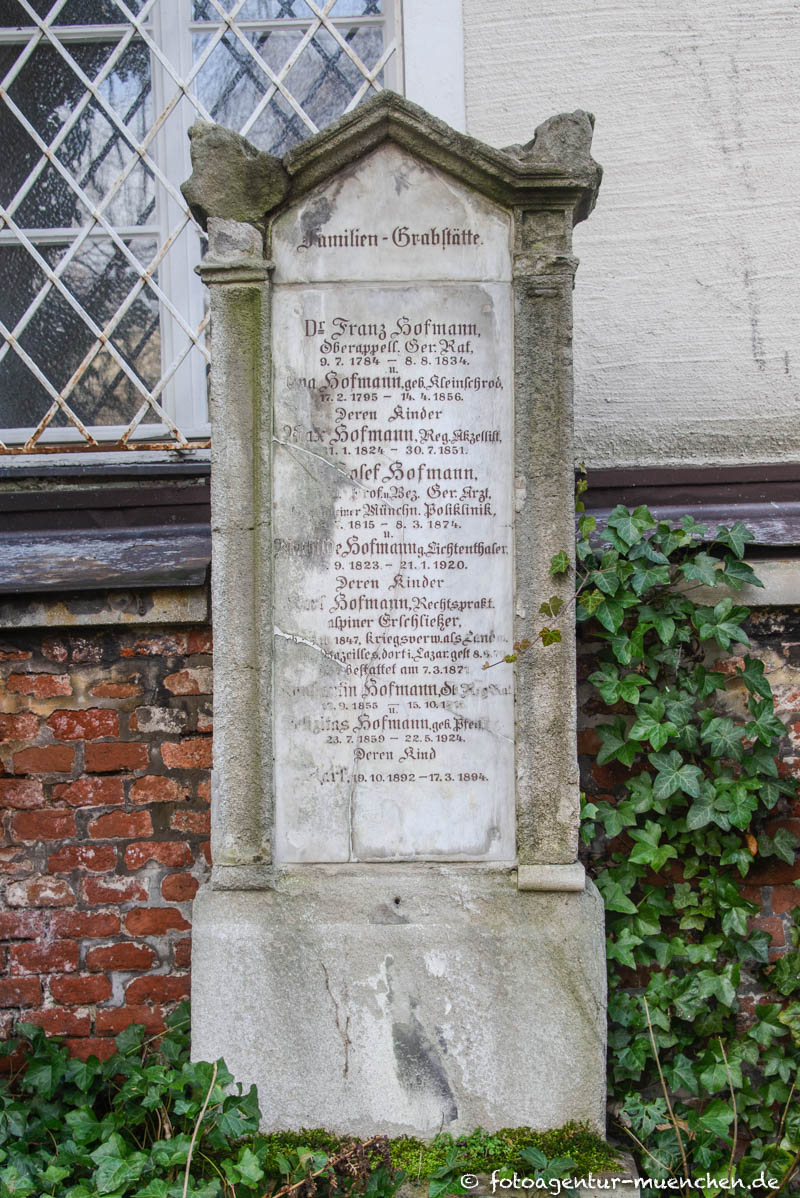 Familien-Grabstätte.
Dr Franz Hofmann,
Oberappell. Ger. Rat,
9.7.1784 – 8.8.1834.
u.
Hofmann, geb. Kleinschrod,
17.2.1795 – 14.4.1856.
Deren Kinder
Max Hofmann, Reg. Akzessist,
1.1824 – 30.7.1851.
Josef Hofmann,
Prof. u. Bez. Ger. Arzt,
Münchn. Poliklinik,
1815 – 8.3.1874.
u.
Hofmann g. Lichtenthaler,
9.1823 – 21.1.1920.
Deren Kinder
Karl Hofmann, Rechtsprakt.
alpiner Erschließer,
1847, Kriegsverw. als Landw.
dort i. Lazar. gest. 8.8.
bestattet am 7.3.187
Hofmann,
9.1855 – 15.10.
u.
Hofmann, geb.
23.7.1859 – 22.5.1924.
Deren Kind
Karl, 19.10.1892 – 17.3.1894.
© fotoagentur-muenchen.de